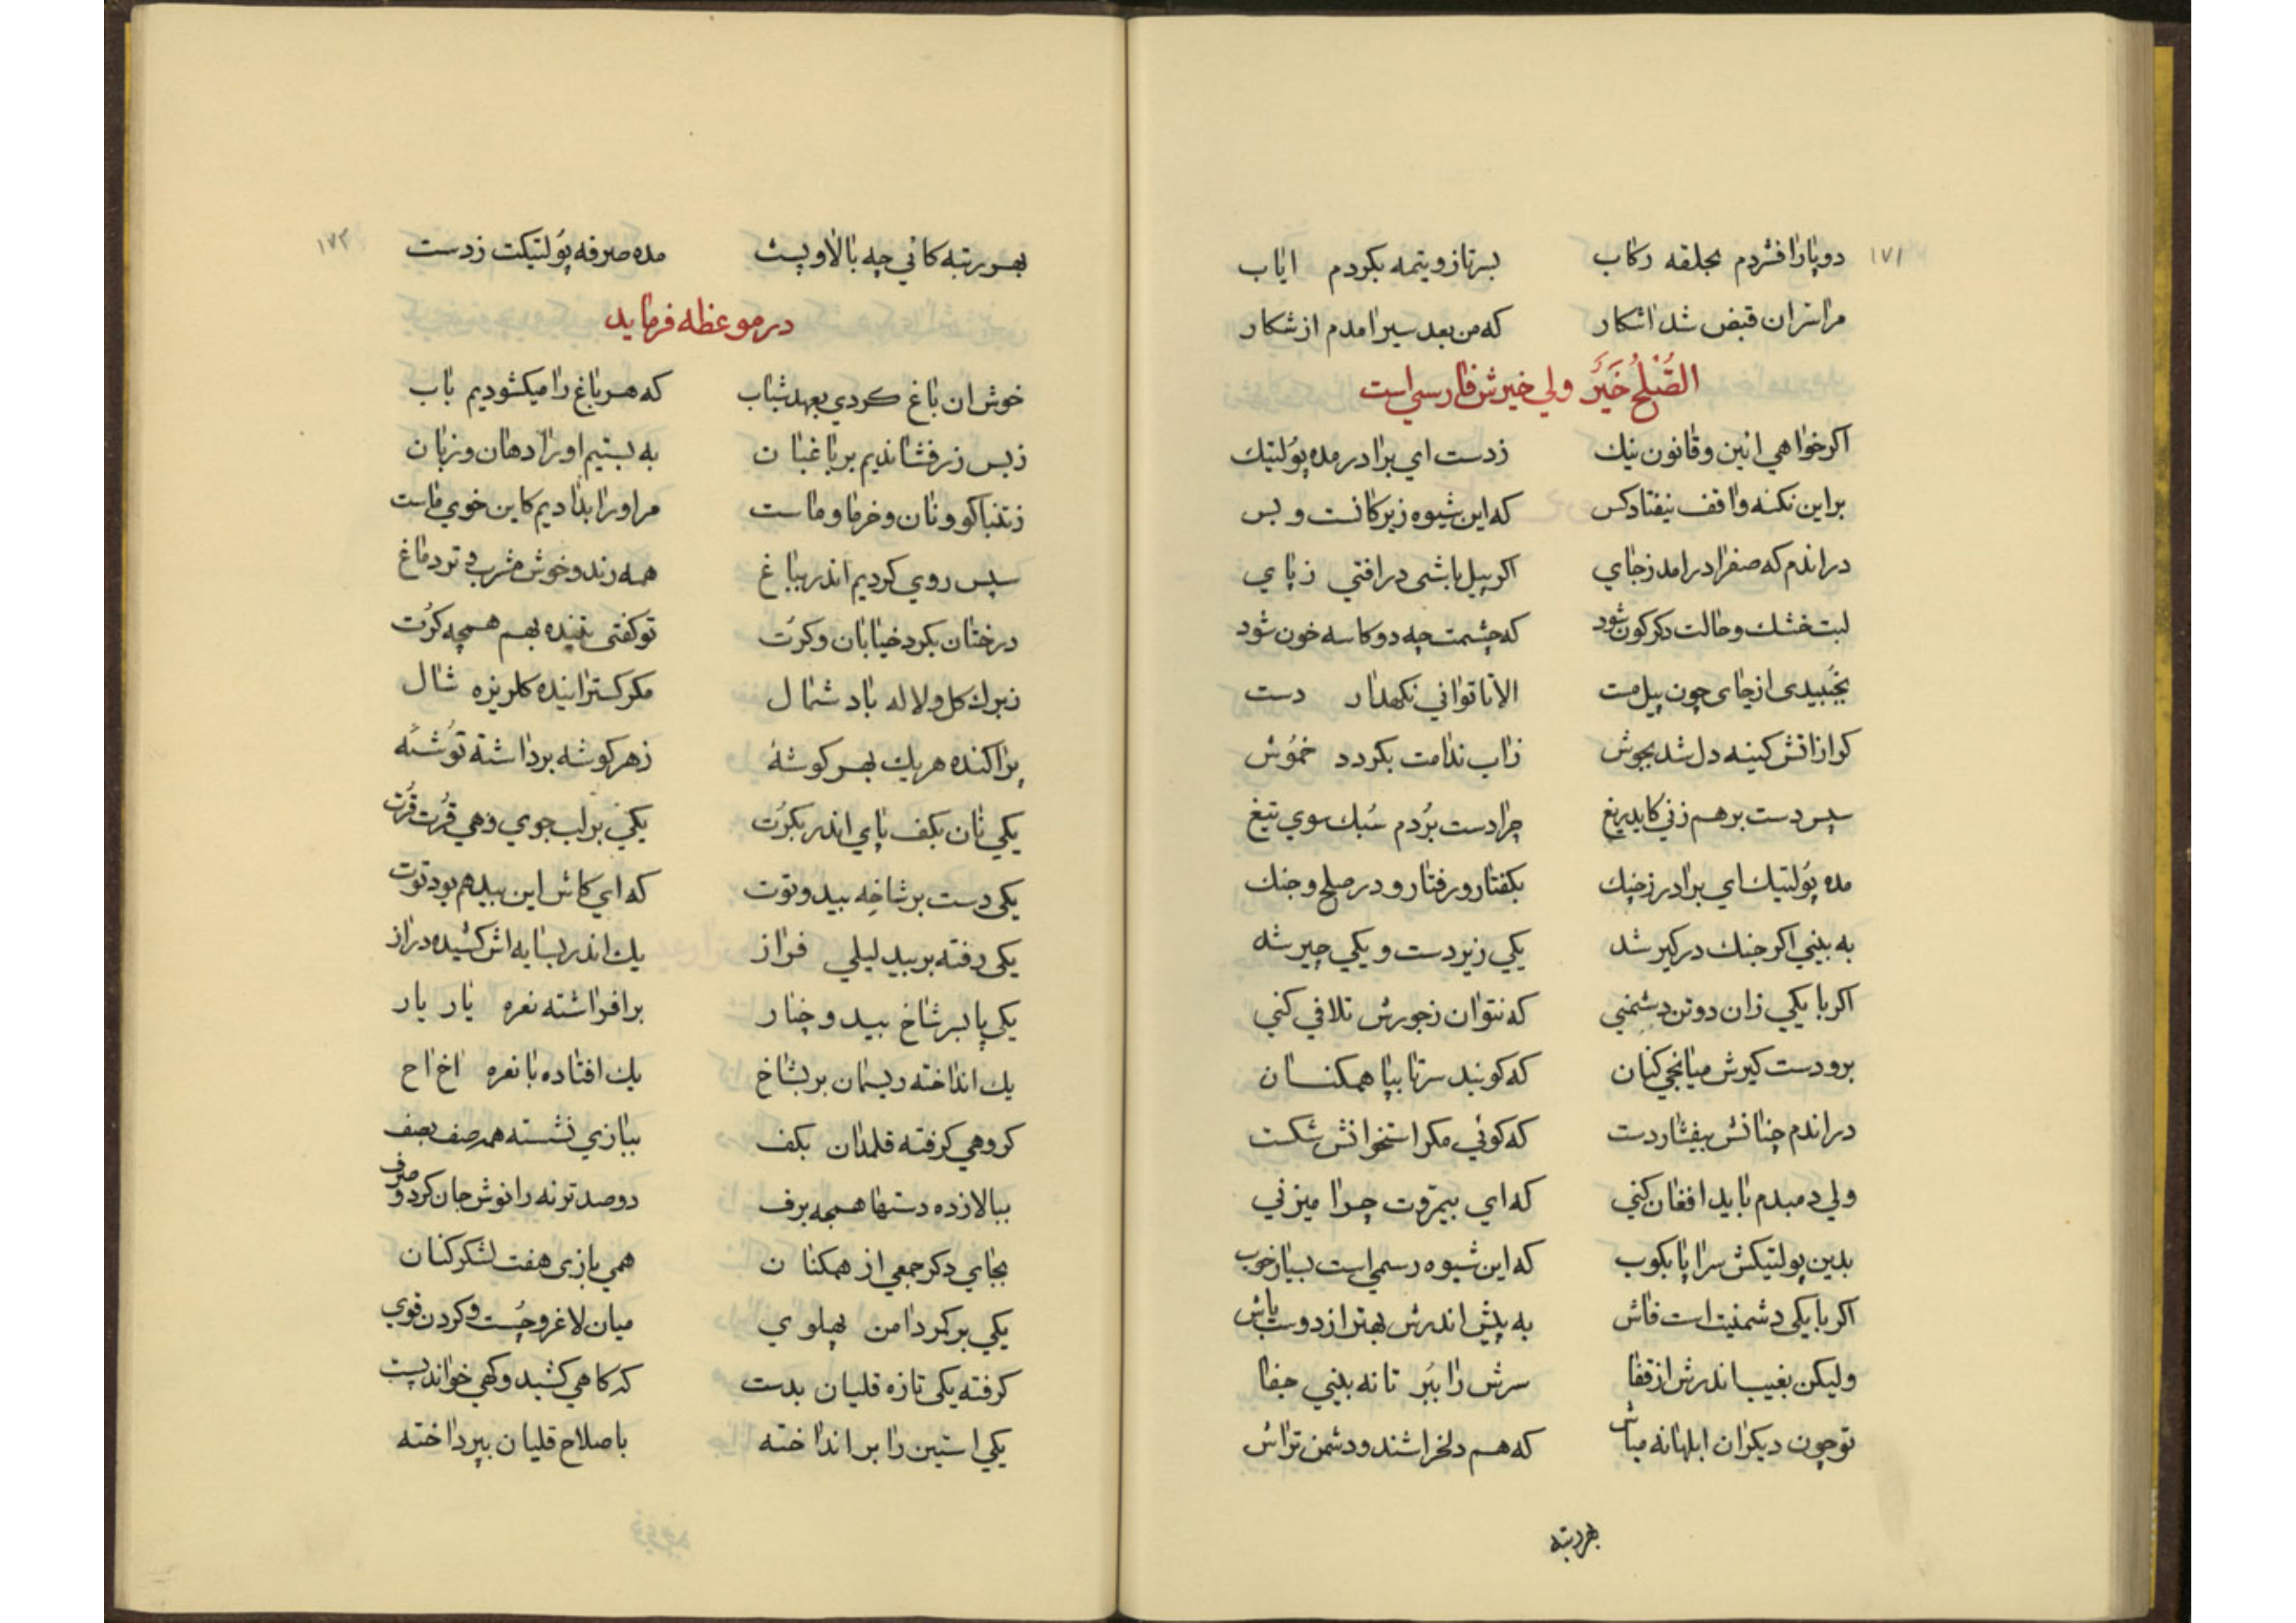 ۱۷۱
دو پا را فشردم بحلقه رکاب بسرتازو یتمه بکردم ایاب
مرا نران قبض شد اشکار که من بعد سیر امدم از شکار
الصُّلْحُ خَیْرٌ ولی خیرش فارسی است
اکر خواهی ائین و قانون نیك زدست ای برادر مده پولتیك
بر این نکته واقف نیفتاد کس که این شیوه زیرکانست و بس
در اندم که صفرا در امد زجای اکر پیل باشی در افتی ز پای
لبت خشك و حالت دکرکون شود که چشمت چه دو کاسه خون شود
بجنبیدی از جای چون پیل مست الا تا توانی نکهدار دست
کر از اتش کینه دل شد بجوش ز اب ندامت بکردد خموش
سپس دست بر هم زنی کایدریغ چرا دست بردم سبك سوی تیغ
مده پولتیك ای برادر ز چنك بکفتار و رفتار و در صلح و جنك
به بینی اکر جنك درکیر شد یکی زیردست و یکی چیر شد
اکر با یکی زان دو تن دشمنی که نتوان ز جورش تلافی کنی
برو دست کیرش میانجی کنان که کویند سرتا بپا همکنان
در اندم چنانش بیفشار دست که کوئی مکر استخوانش شکست
ولی دمبدم باید افغان کنی که ای بیمروت چرا میزنی
بدین پولتیکش سراپا بکوب که این شیوه رسمی است بسیار خوب
اکر با یکی دشمنیت است فاش به پیش اندرش بهتر از دوست باش
ولیکن بغیب اندرش از قفا سرش را ببر تا نه بینی جفا
تو چون دیکران ابلهانه مباش که هم دلخراشند و دشمن تراش
بهر رتبه
۱۷۲
بهر رتبه کانی چه بالا و پست مده صرفه پولتیکت زدست
در موعظه فرماید
خوش ان باغ کردی بعهد شباب که هر باغ را میکشودیم باب
ز بس زر فشاندیم بر باغبان به بستیم او را دهان و زبان
ز تنباکو و نان و خرما و ماست مر او را بدادیم کاین خوی ماست
سپس روی کردیم اندر بباغ همه رند و خوش مشرب و تر دماغ
درختان بکرد خیابان و کرت تو کفتی تنیده بهم همچه کرت
ز برك کل و لاله باد شمال مکر کسترانیده کلریزه شال
پراکنده هر یك بهر کوشهٔ ز هر کوشه برداشته توشهٔ
یکی نان بکف پای اندر بکرت یکی بر لب جوی و هی قرت قرت
یکی دست بر شاخه بید و توت که ای کاش این بید هم بود توت
یکی رفته بر بید لیلی فراز یك اندر بسایه اش کشیده دراز
یکی پا بسر شاخ بید و چنار برافراشته نعره یار یار
یك انداخته ریسمان بر بشاخ یك افتاده با نعره اخ اخ
کروهی کرفته قلمدان بکف ببازی نشسته همه صف بصف
ببالا زده دستها همچه برف دو صد ترنه را نوش جان کرد و صرف
بجای دکر جمعی از همکنان همی بازی هفت لشکر کنان
یکی بر کمر دامن پهلوی میان لاغر و چست و کردن قوی
کرفته یکی تازه قلیان بدست که کاهی کشید و کهی خواند پست
یکی استین را بر انداخته باصلاح قلیان بپرداخته